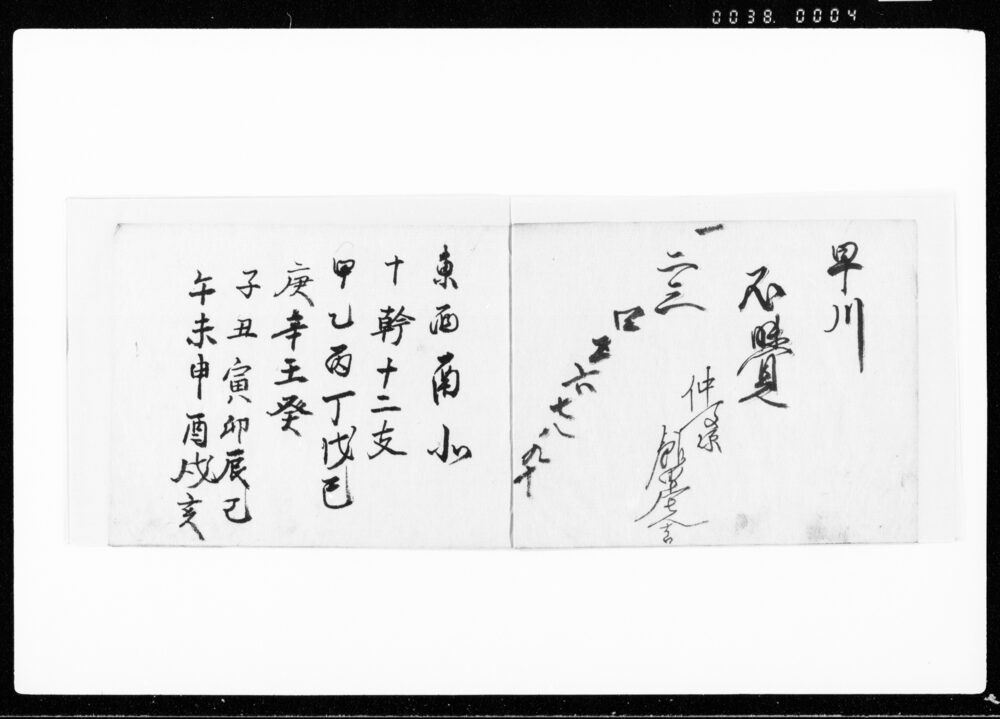 0038. 0004
早川
不覺
一
二三
四五六七八九十
仲
東西南北
十幹十二支
甲乙丙丁戊己
庚辛壬癸
子丑寅卯辰巳
午未申酉戌亥